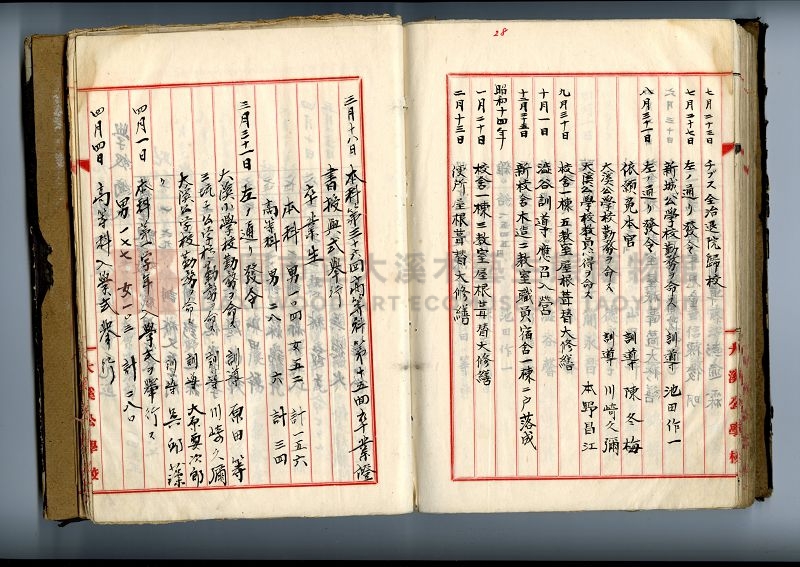 28
七月二十三日 チブス全治退院歸校
七月二十七日 左ノ通リ發令
新城公學校勤務ヲ命ス 訓導 池田作一
八月三十一日 左ノ通リ發令
依願免本官 訓導 陳冬梅
大溪公學校勤務ヲ命ス 訓導 川崎久彌
大溪公學校教員心得ヲ命ス 本野昌江
九月三十日 校舍一棟五教室屋根葺替大修繕
十月一日 澁谷訓導應召入營
十二月二十五日 新校舍木造二教室職員宿舍一棟二戶落成
昭和十四年
一月二十日 校舍一棟三教室屋根葺替大修繕
二月十三日 便所屋根葺替大修繕
大溪公學校
三月十八日 本科第三十六回高等科第十五回卒業證
書授與式舉行
卒業生
本科 男一〇四 女五二 計一五六
高等科 男二八 六 計三四
三月三十一日 左ノ通リ發令
大溪小學校勤務ヲ命ス 訓導 原田等
三坑子公學校勤務ヲ命ス 訓導 川崎久彌
大溪公學校勤務ヲ命ス
四月一日 本科第一學年入學式ヲ舉行ス
男一七七 女一〇三 計二八〇
四月四日 高等科入學式舉行
大溪公學校